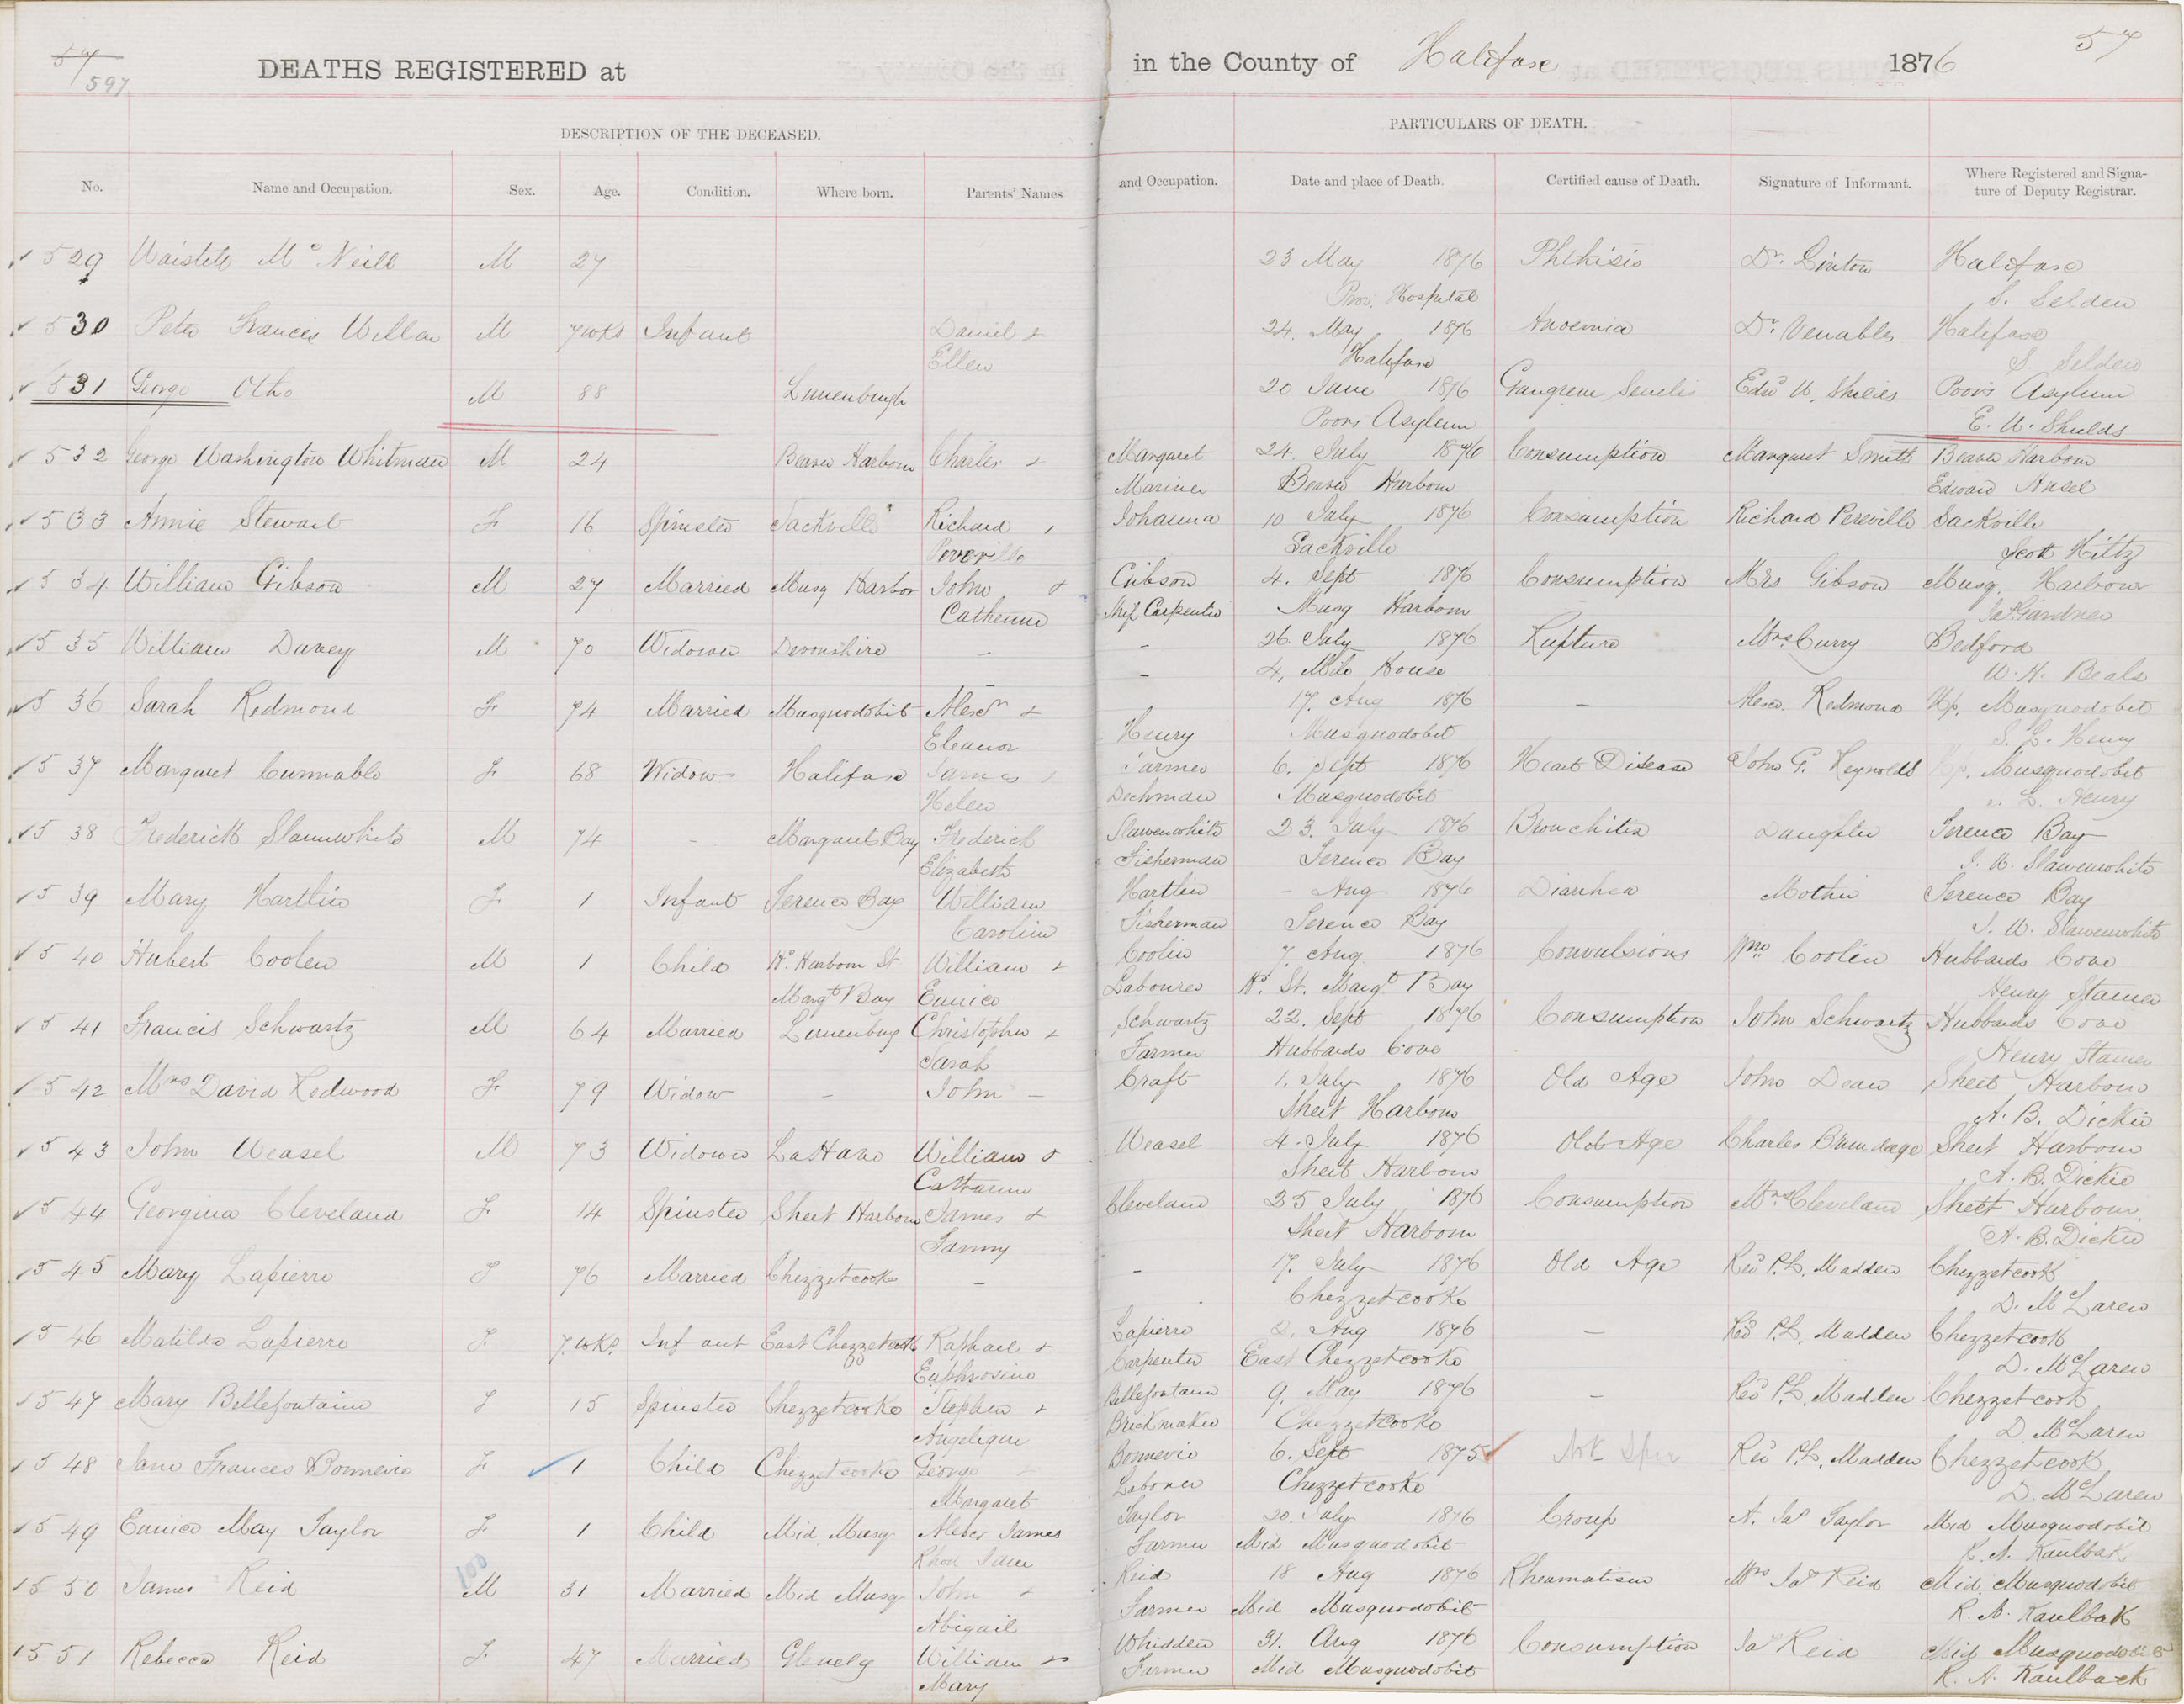 57
597
DEATHS REGISTERED at in the County of Halifax 1876
57
DESCRIPTION OF THE DECEASED. PARTICULARS OF DEATH.
No. Name and Occupation. Sex. Age. Condition. Where born. Parents' Names and Occupation. Date and place of Death. Certified cause of Death. Signature of Informant. Where Registered and Signature of Deputy Registrar.
529 McNeill M 27 — 23 May 1876 Phthisis Dr. Linton Halifax
Prov. Hospital S. Selden
530 Peter Francis M 7 wks Infant Daniel & 24. May 1876 Anoemia Dr. Venables Halifax
Ellen Halifax S. Selden
531 George Otho M 88 Lunenburgh 20 June 1876 Gangrene Senilis Edwd W. Shields Poors Asylum
Poors Asylum E. W. Shields
532 George Washington Whitman M 24 Beaver Harbour Charles & Margaret 24. July 1876 Consumption Margaret Smith Beaver Harbour
Mariner Beaver Harbour Edward
533 Annie Stewart F 16 Spinster Sackville Richard , Johanna 10 July 1876 Consumption Richard Sackville
Sackville Scott Hiltz
534 William Gibson M 27 Married Musq Harbor John & Gibson 4. Sept 1876 Consumption Mrs Gibson Musq. Harbour
Catherine Ship Carpenter Musq Harbour Jas Gardner
535 William Davey M 70 Widower Devonshire — — 26. July 1876 Rupture Mrs. Curry Bedford
— — 4, Mile House W. H. Beals
536 Sarah Redmond F 74 Married Musquodobit Alexr & 17. Aug 1876 — Alexr. Redmond Up. Musquodobit
Eleanor Henry Musquodobit S. L. Henry
537 Margaret Cunnable F 68 Widow Halifax James , Farmer 6. Sept 1876 Heart Disease John G. Reynolds Up. Musquodobit
Helen Dechman Musquodobit S. L. Henry
538 Frederick Slaunwhite M 74 — Margaret Bay Frederick Slawenwhite 23. July 1876 Bronchitis Daughter Terence Bay
Elizabeth Fisherman Terence Bay J. W. Slawenwhite
539 Mary Hartlin F 1 Infant Terence Bay William Hartlin — Aug 1876 Diarrhea Mother Terence Bay
Caroline Fisherman Terence Bay J. W. Slawenwhite
540 Hubert Coolen M 1 Child Hd. Harbour St William & Coolin 7. Aug 1876 Convulsions Wm. Coolin Hubbards Cove
Margt Bay Eunice Labourer Hd. St. Margt Bay Henry Stamer
541 Francis Schwartz M 64 Married Lunenburg Christopher & Schwartz 22. Sept 1876 Consumption John Schwartz Hubbards Cove
Sarah Farmer Hubbards Cove Henry Stamer
542 Mrs David Redwood F 79 Widow — John — Craft 1. July 1876 Old Age John Dean Sheet Harbour
Sheet Harbour A. B. Dickie
543 John Weasel M 73 Widower LaHave William & Weasel 4. July 1876 Old Age Charles Brundage Sheet Harbour
Catharine Sheet Harbour A. B. Dickie
544 Georgina Cleveland F 14 Spinster Sheet Harbour James & Cleveland 25 July 1876 Consumption Mrs Cleveland Sheet Harbour
Fanny Sheet Harbour A. B. Dickie
545 Mary Lapierre F 76 Married Chezzetcooke — — 17. July 1876 Old Age Revd P.L. Madden Chezzetcook
Chezzetcooke D. McLaren
546 Matilda Lapierre F 7 wks. Infant East Chezzetcook Raphael & Lapierre 2. Aug 1876 — Revd P.L. Madden Chezzetcook
Euphrosine Carpenter East Chezzetcooke D. McLaren
547 Mary Bellefontaine F 15 Spinster Chezzetcooke Stephen & Bellefontaine 9. May 1876 — Revd P.L. Madden Chezzetcook
Angelique Brickmaker Chezzetcooke D. McLaren
548 Jane Frances Bonnevie F 1 Child Chezzetcooke George & Bonnevie 6. Sept 1875 Not Spec Revd P.L. Madden Chezzetcook
Margaret Labourer Chezzetcooke D. McLaren
549 Eunice May Taylor F 1 Child Mid. Musq James Taylor 20. July 1876 Croup A. Jas Taylor Mid Musquodobit
Farmer Mid Musquodobit R. A. Kaulbak
100
550 James Reid M 31 Married Mid Musq John & Reid 18 Aug 1876 Rheumatism Mrs Jas Reid Mid. Musquodobit
Abigail Farmer Mid Musquodobit R. A. Kaulbak
551 Rebecca Reid F 47 Married Glenelg William & Whidden 31. Aug 1876 Consumption Jas Reid Mid Musquodobit
Mary Farmer Mid Musquodobit R. A. Kaulback